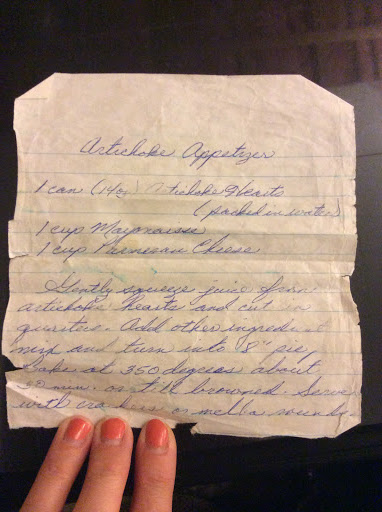 Artichoke Appetizer
1 can (14oz) Artichoke Hearts
(packed in water)
1 cup Maynaise
1 cup Parmesan Cheese
Gently squeeze juice from
artichoke hearts and cut in
quarters. Add other ingredient
mix and turn into 8" pie
bake at 350 degrees about
min. or till browned. Serve
with crackers or melba rounds